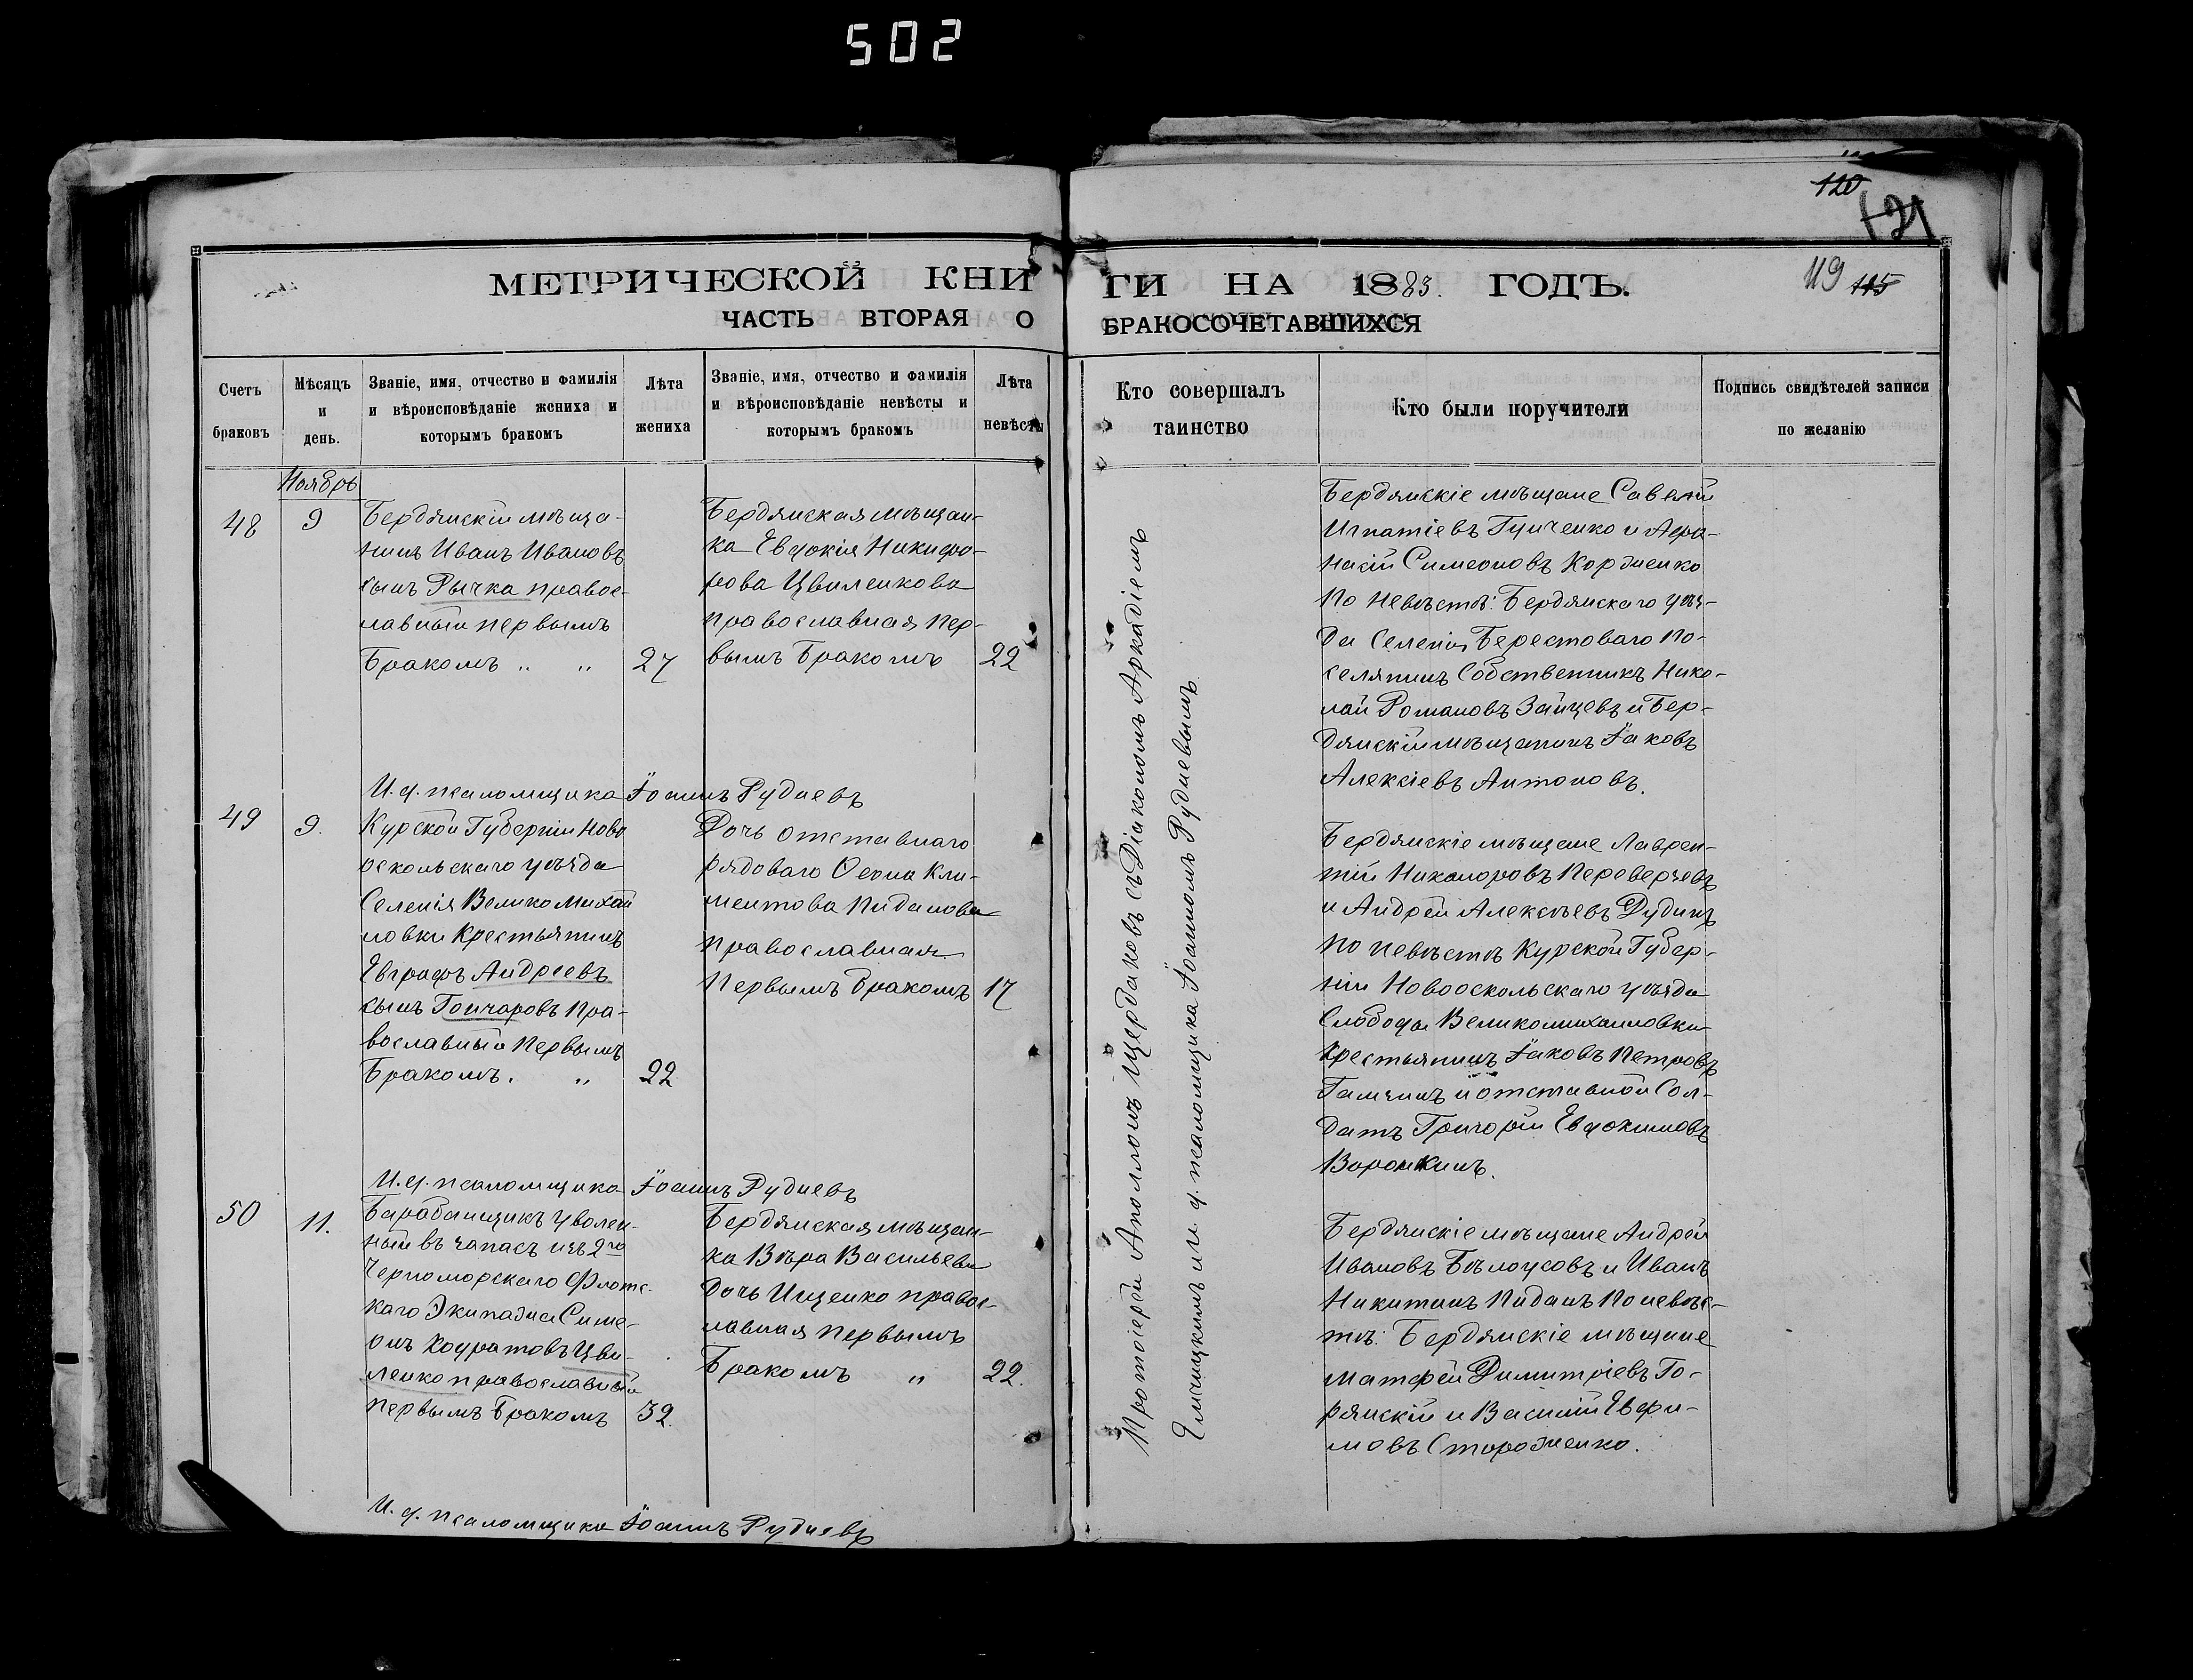 502
120
121
МЕТРИЧЕСКОЙ КНИ
ГИ НА 1883. ГОДЪ.
119 115
ЧАСТЬ ВТОРАЯ О
БРАКОСОЧЕТАВШИХСЯ
Счетъ
браковъ
Мѣсяцъ
и
день.
Званіе, имя, отчество и фамилія
и вѣроисповѣданіе жениха и
которымъ бракомъ
Лѣта
жениха
Званіе, имя, отчество и фамилія
и вѣроисповѣданіе невѣсты и
которымъ бракомъ
Лѣта
невѣсты
Кто совершалъ
таинство
Кто были поручители
Подпись свидѣтелей записи
по желанію
Ноябрь
48
9
Бердянскій мѣща-
нинъ Иванъ Ивановъ
сынъ Рычка правос-
лавный первымъ
Бракомъ „ „
27
Бердянская мѣщан-
ка Евдокія Никифо-
рова Цвиленкова
православная пер-
вымъ Бракомъ
22
Бердянскіе мѣщане Савелій
Игнатіевъ Гунченко и Афа-
насій Симеоновъ Кордненко
По невѣстѣ: Бердянскаго уѣз-
да Селенія Берестоваго По-
селянинъ Собственникъ Нико-
лай Романовъ Зайцевъ и Бер-
дянскій мѣщанинъ Іаковъ
Алексіевъ Антоновъ.
И. д. псаломщика Іоаннъ Рудневъ
49
9.
Курской Губерніи Ново
оскольскаго уѣзда
Селенія Велико Михай
ловки Крестьянинъ
Евграфъ Андреевъ
сынъ Гончаровъ Пра-
вославный Первымъ
Бракомъ. „
22
Дочь отставнаго
рядоваго Ѳеона Кли-
ментова Пиданова
православная
Первымъ бракомъ
17
Бердянскіе мѣщане Лаврен-
тій Никаноровъ Переверзевъ
и Андрей Алексѣевъ Дудинъ
по невѣстѣ Курской Губер-
ніи Новооскольскаго уѣзда
Слободы Великомихайловки
Крестьянинъ Іаковъ Петровъ
Ганчинъ и отставной Сол-
датъ Григорій Евдокимовъ
Воронкинъ.
И. д. псаломщика Іоаннъ Рудневъ
50
11.
Барабанщикъ уволен-
ный въ запасъ изъ 2го
Черноморскаго Флотс-
каго Экипажа Симе-
онъ Кодратовъ Цви-
ленко православный
первымъ Бракомъ
32.
Бердянская мѣщан-
ка Вѣра Васильева
дочь Ищенко правос-
лавная первымъ
Бракомъ „
22.
Бердянскіе мѣщане Андрей
Ивановъ Бѣлоусовъ и Иванъ
Никитинъ Пиданъ По невѣс-
тѣ: Бердянскіе мѣщане
Матфей Димитріевъ Го-
рянскій и Василій Евфи-
мовъ Стороженко.
И. д. псаломщика Іоаннъ Рудневъ
Протоіерей Аполлонъ Щербаковъ съ Діакономъ Аркадіемъ
и и. д. псаломщика Іоанномъ Рудневымъ